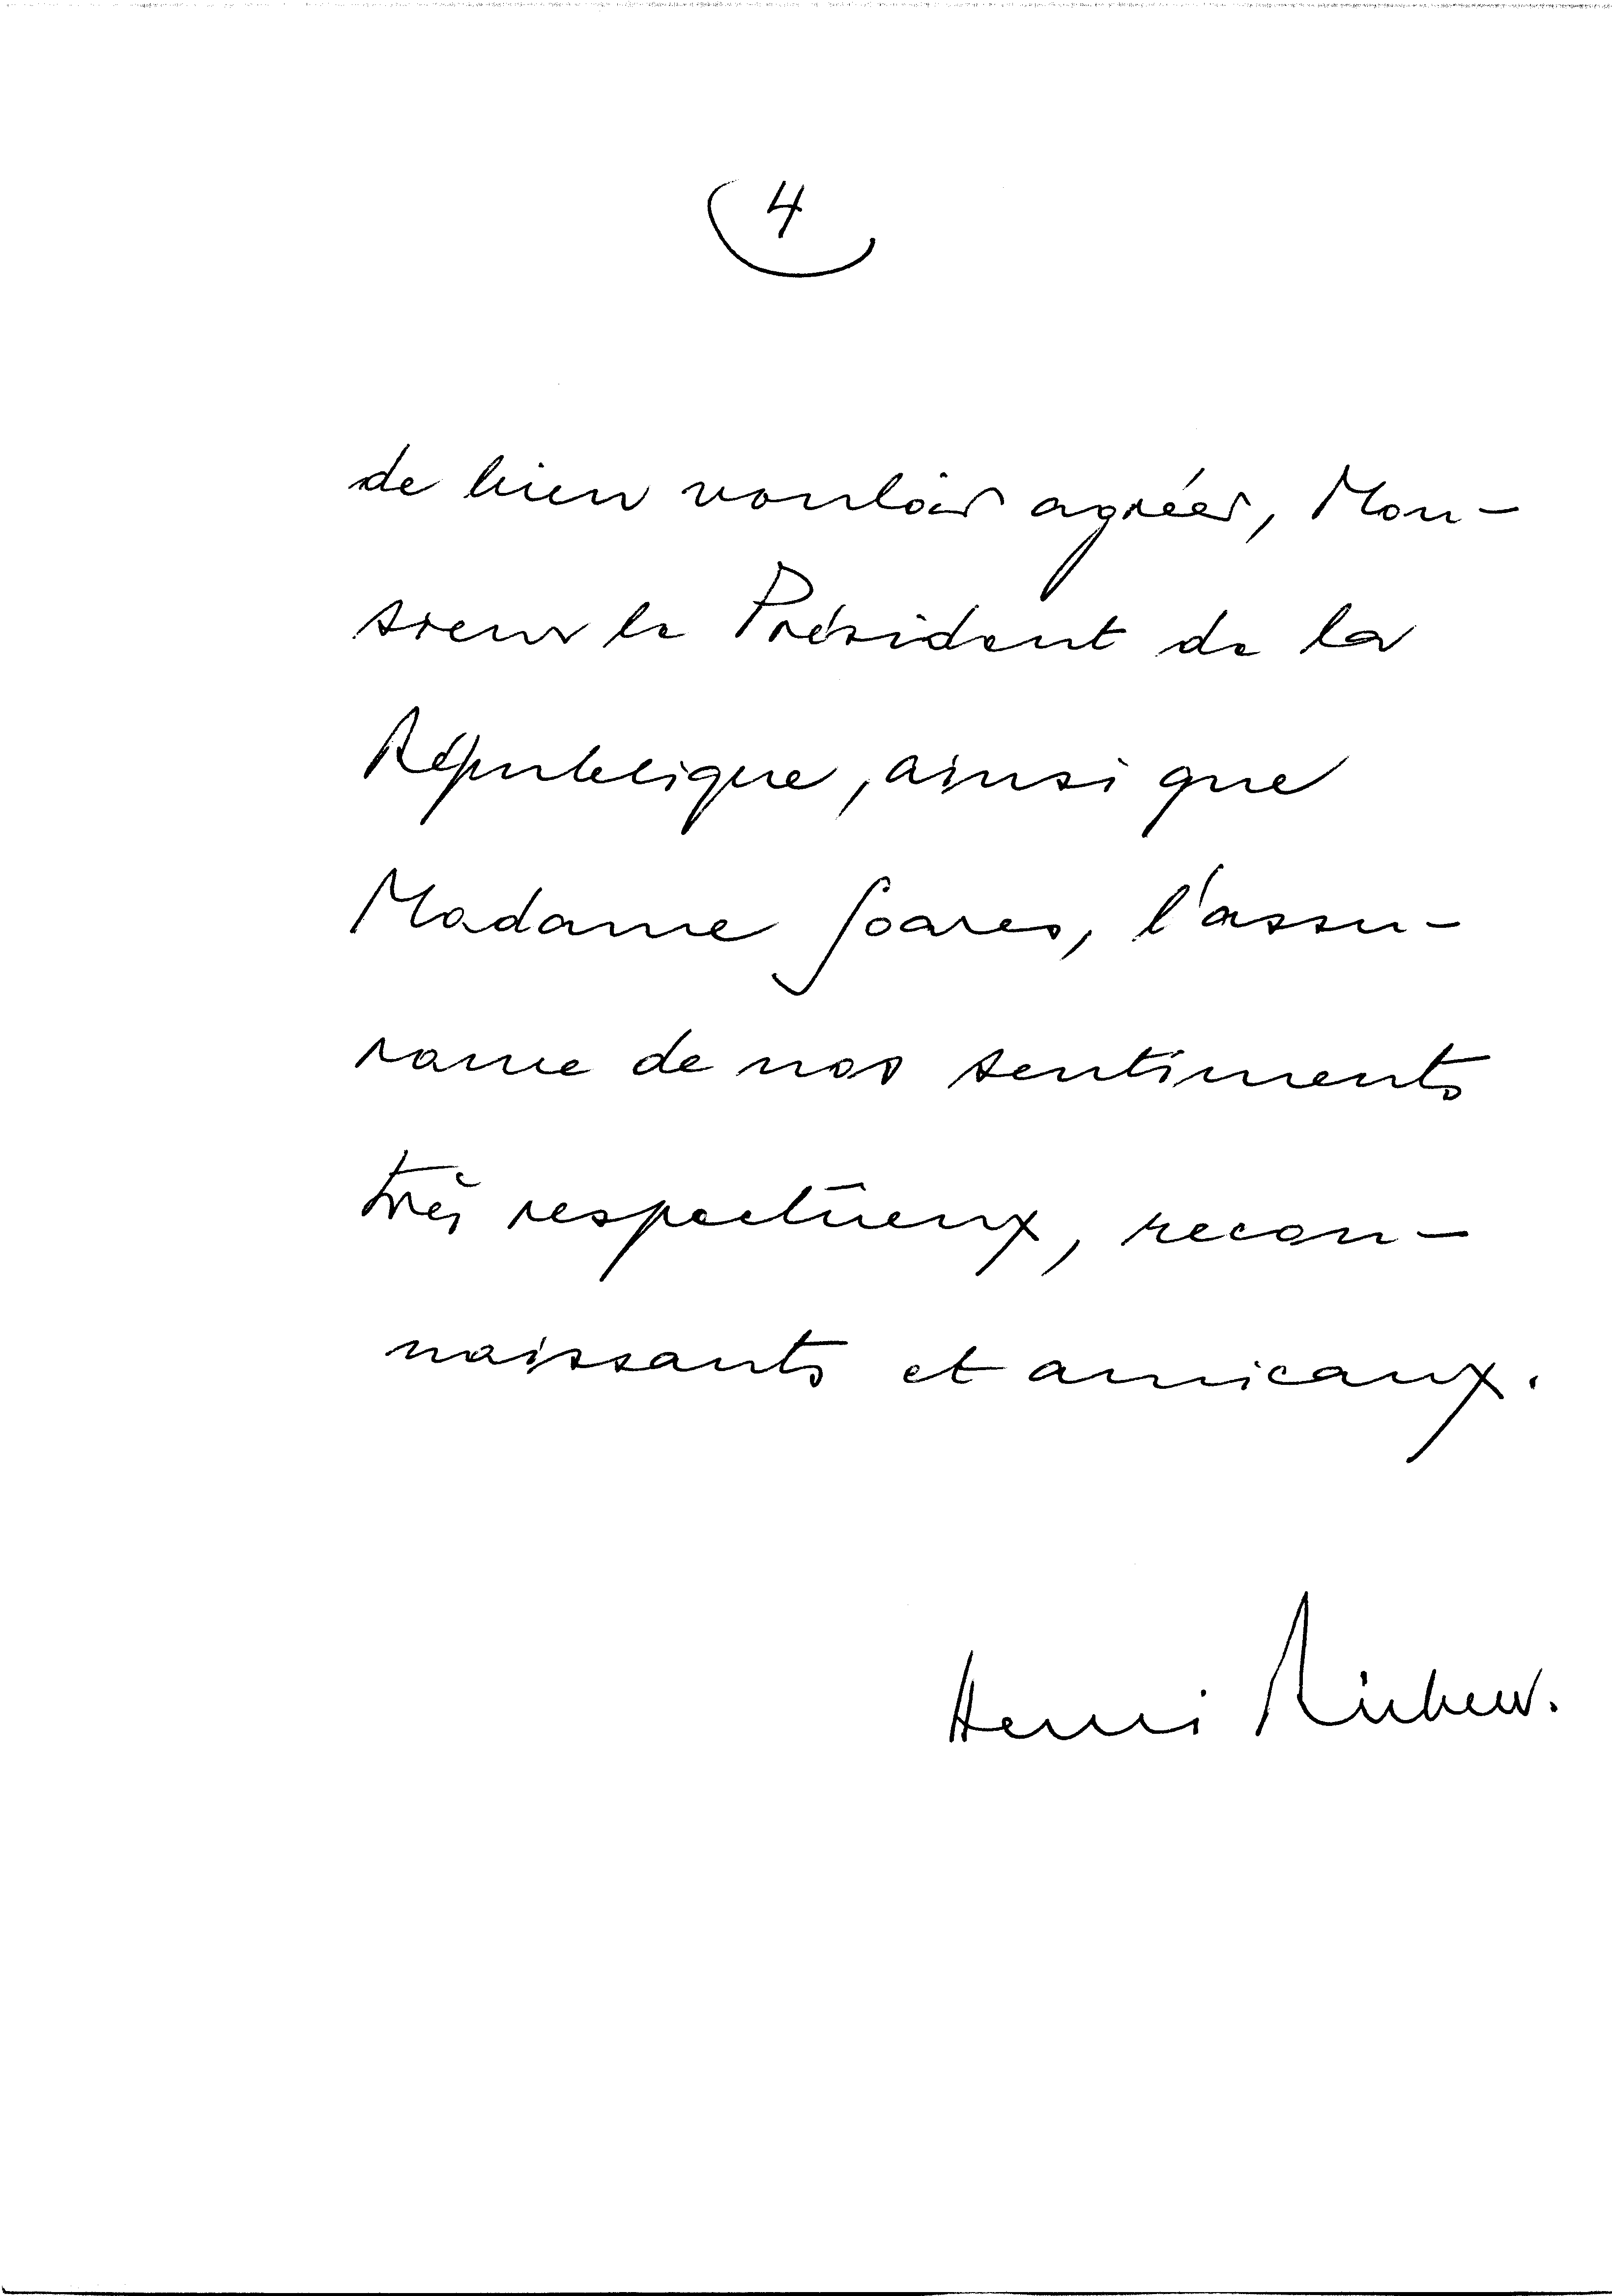 4
de bien vouloir agréer, Mon-
sieur le Président de la
République, ainsi que
Madame Soares, l'assu-
rance de nos sentiments
très respectueux, recon-
naissants et amicaux.
Henri